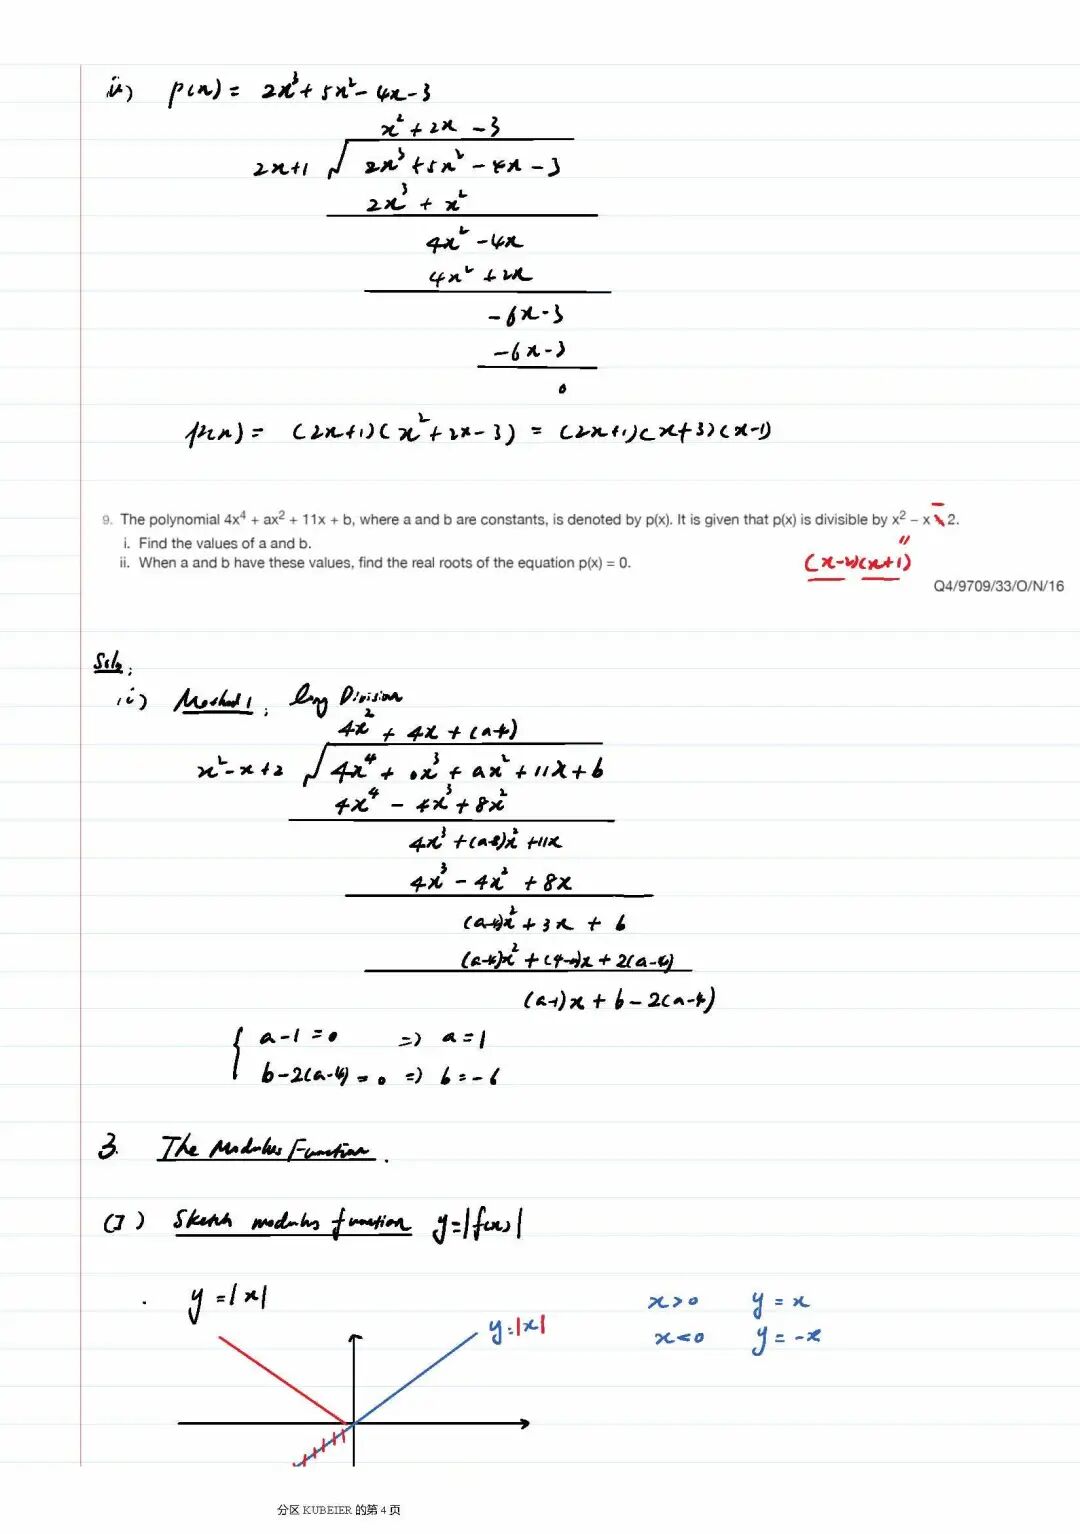 ii) p(x) = 2x³ + 5x² - 4x - 3
x² + 2x - 3
2x+1 √ 2x³ + 5x² - 4x - 3
2x³ + x²
4x² - 4x
4x² + 2x
-6x - 3
-6x - 3
0
p(x) = (2x+1)(x² + 2x - 3) = (2x+1)(x+3)(x-1)
9. The polynomial 4x⁴ + ax² + 11x + b, where a and b are constants, is denoted by p(x). It is given that p(x) is divisible by x² – x - 2.
i. Find the values of a and b.
ii. When a and b have these values, find the real roots of the equation p(x) = 0.
(x-2)(x+1)
Q4/9709/33/O/N/16
Soln:
i) Method 1: long Division
4x² + 4x + (a-4)
x² - x + 2 √ 4x⁴ + 0x³ + ax² + 11x + b
4x⁴ - 4x³ + 8x²
4x³ + (a-8)x² + 11x
4x³ - 4x² + 8x
(a-4)x² + 3x + b
(a-4)x² + (4-a)x + 2(a-4)
(a-1)x + b - 2(a-4)
{ a - 1 = 0 => a = 1
b - 2(a-4) = 0 => b = -6
3. The Modulus Function.
(I) Sketch modulus function y = |f(x)|
. y = |x|
x>0 y = x
y = |x|
x<0 y = -x
分区 KUBEIER 的第 4 页